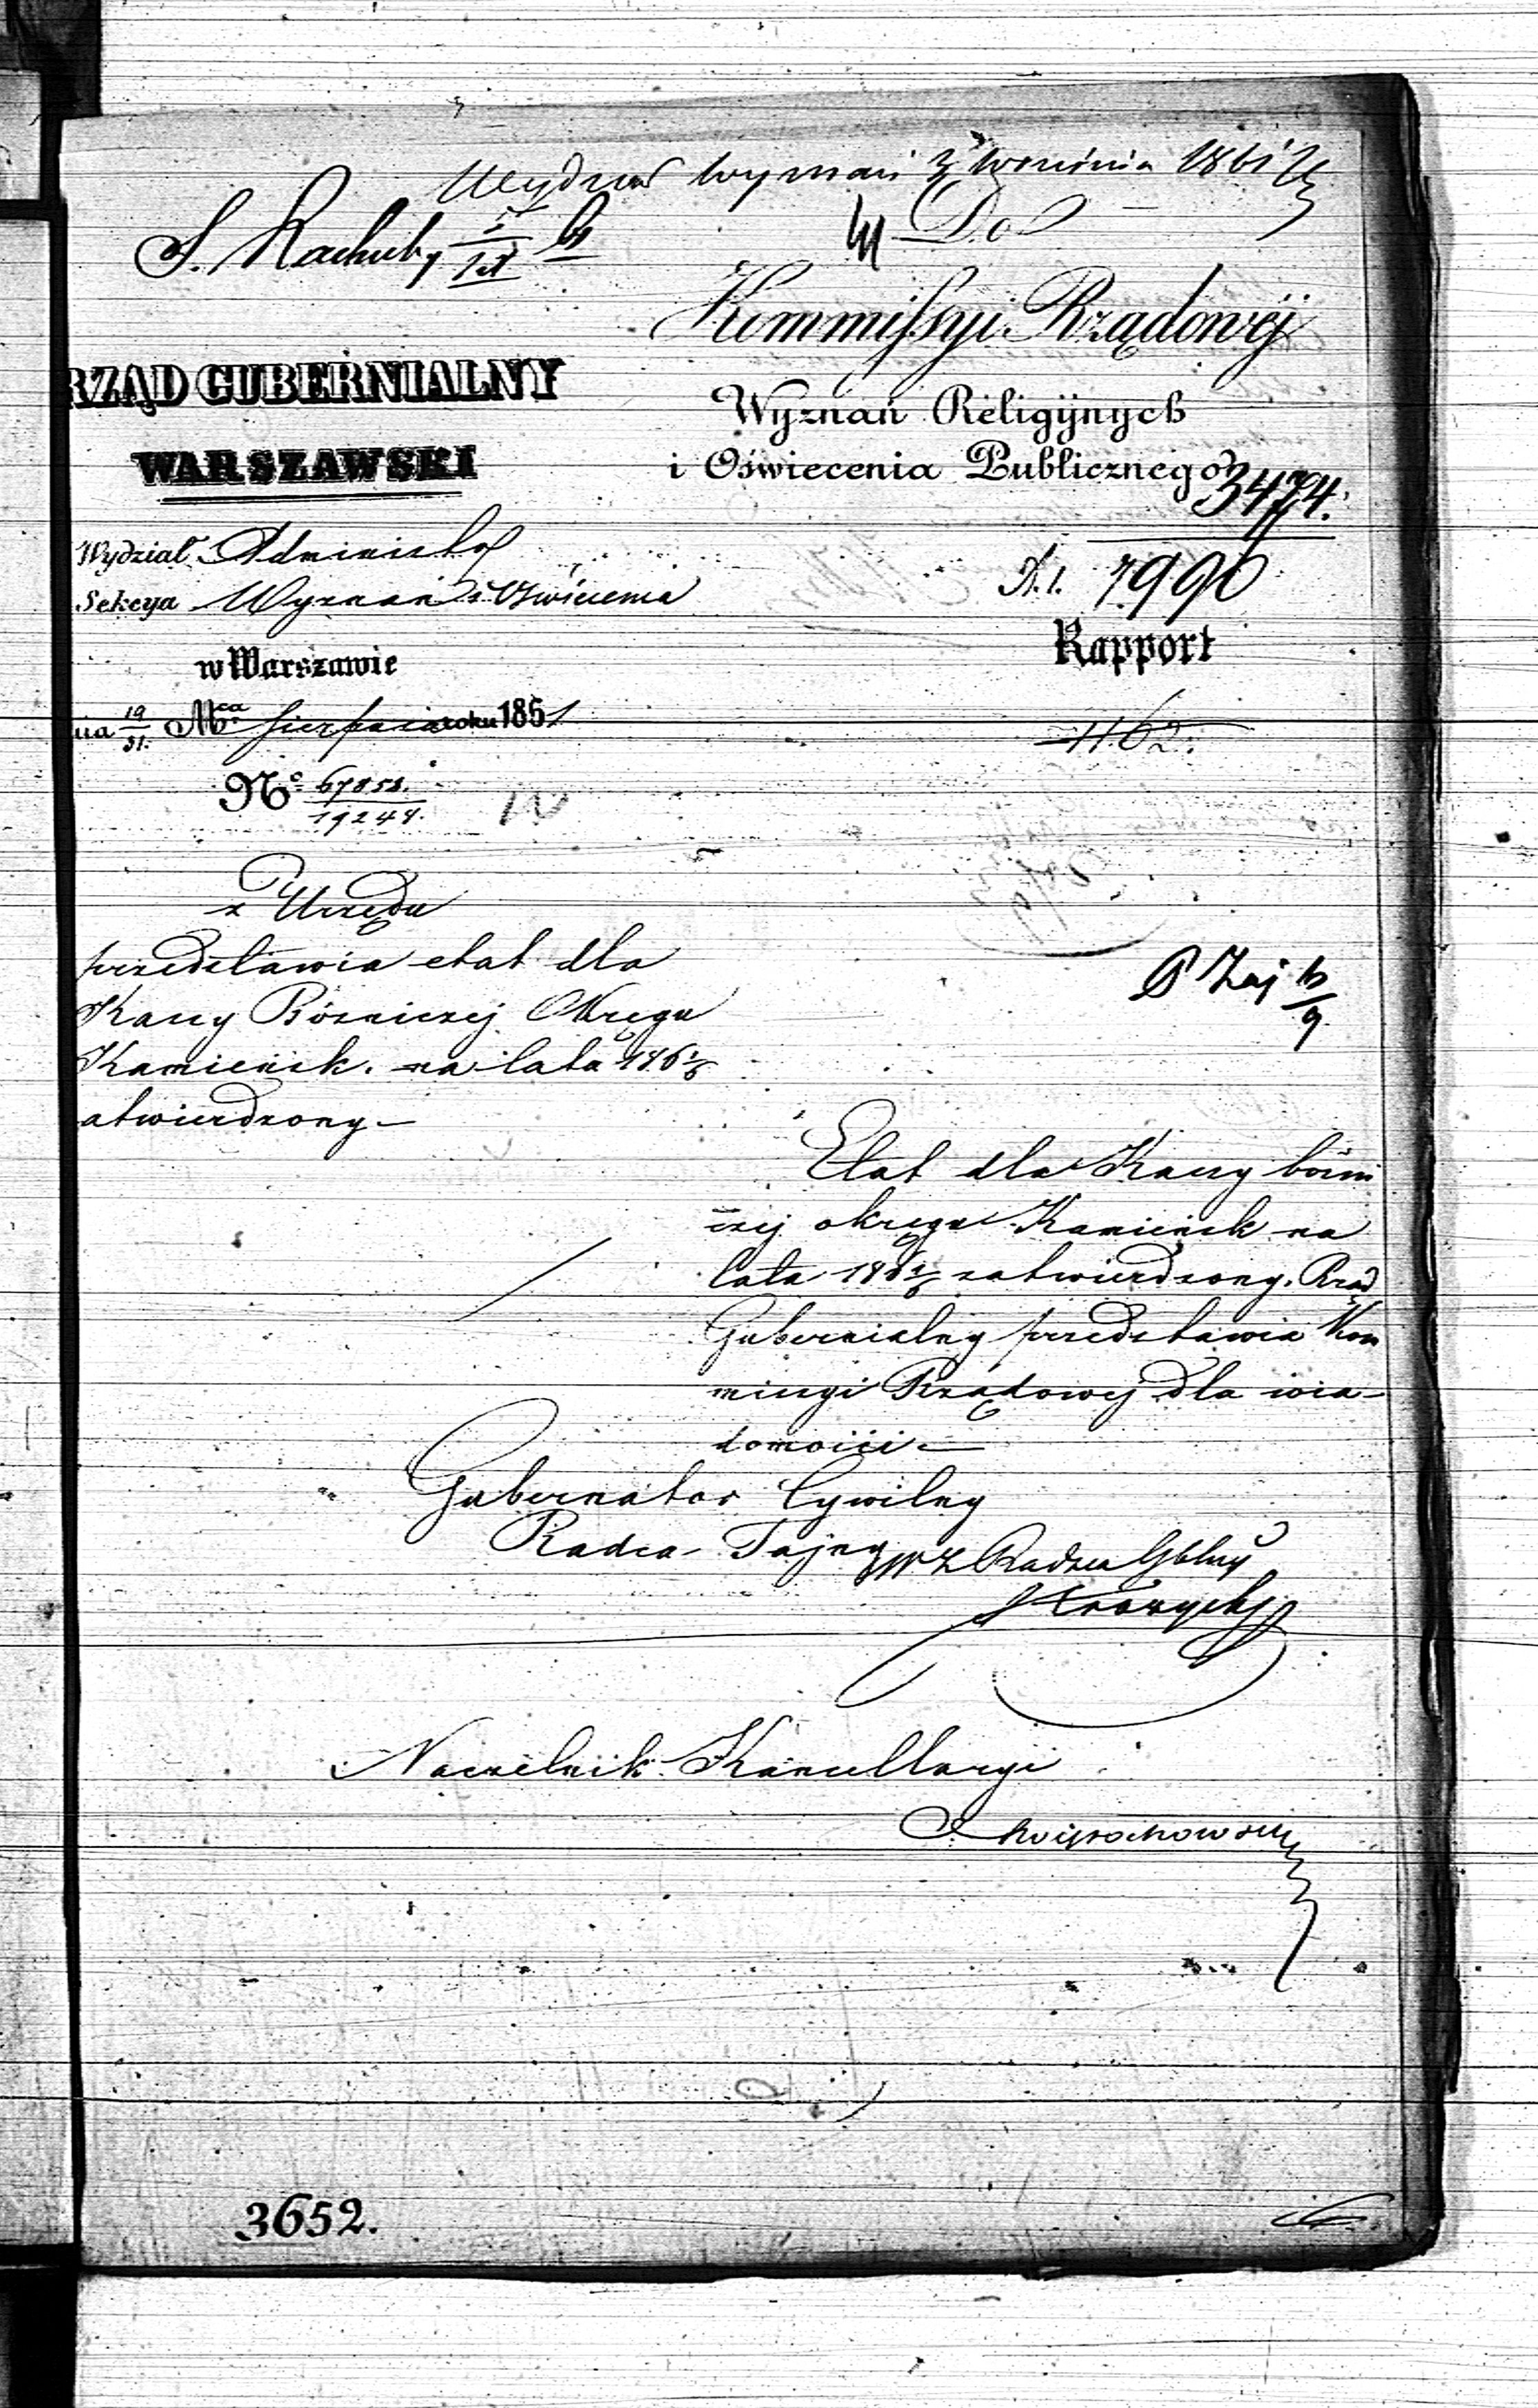 Wydział Wyznań 3 Września 1861
S. Rachuby
Do
Kommissyi Rządowéj
RZĄD GUBERNIALNY
WARSZAWSKI
Wyznań Religijnych
i Oświecenia Publicznego
3474.
Wydział Administ
Sekcya Wyznań i Oświecenia
7990
w Warszawie
Rapport
nia 19/31. Mca Sierpnia roku 1861
1162.
No 67858./19248.
z Urzędu
przedstawia etat dla
Kassy Bóżniczej Okręgu
Kamieńsk. na lata 186 1/6
atwierdzony
Etat dla Kassy bóżni
czej okręgu Kamieńsk na
lata 186 1/6 zatwierdzony. Rząd
Gubernialny przedstawia Kom
missyi Rządowej dla wia-
domości
Gubernator Cywilny
Radca Tajny w z Radca Gblny
Naczelnik Kancellaryi
3652.